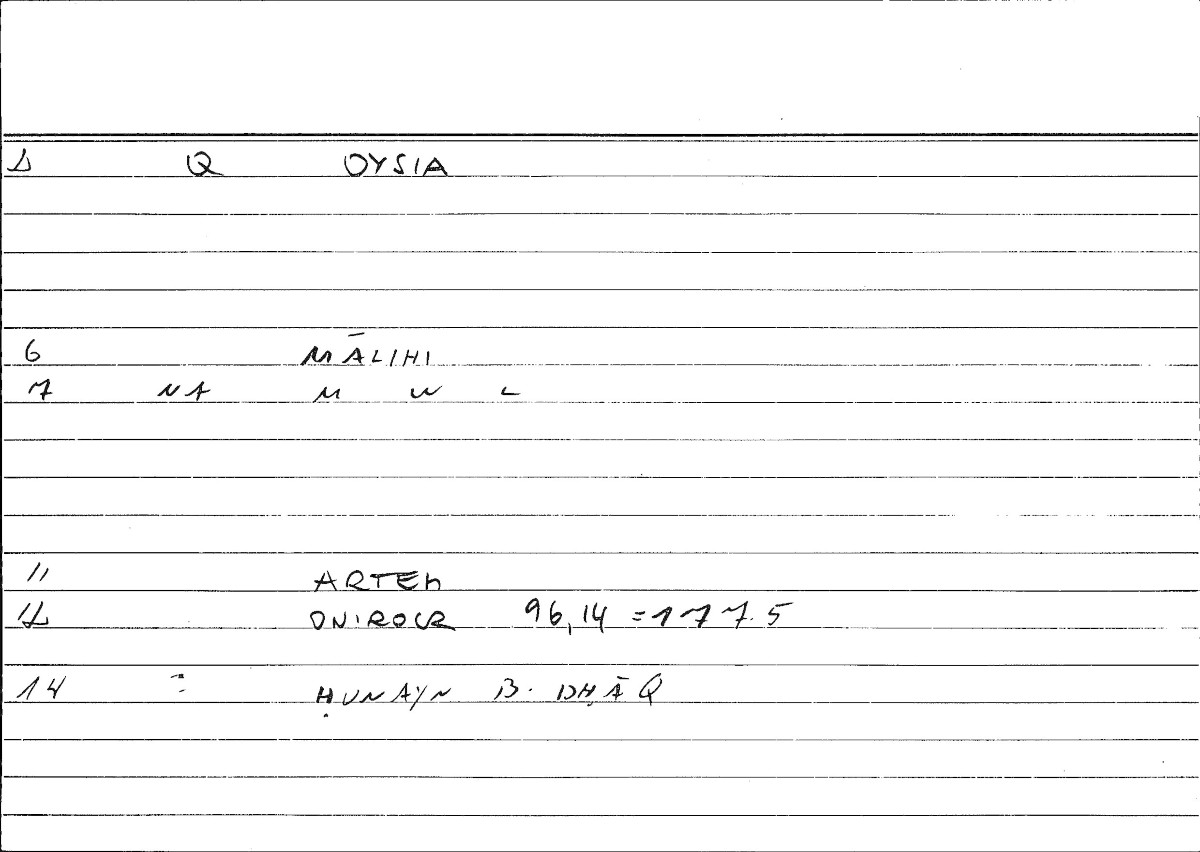 2 Q OYSIA
6 MĀLIHI
7 NA M W L
11 ARTEM
12 ONIROCR 96,14 = 177.5
14 : ḤUNAYN B. ISḤĀQ